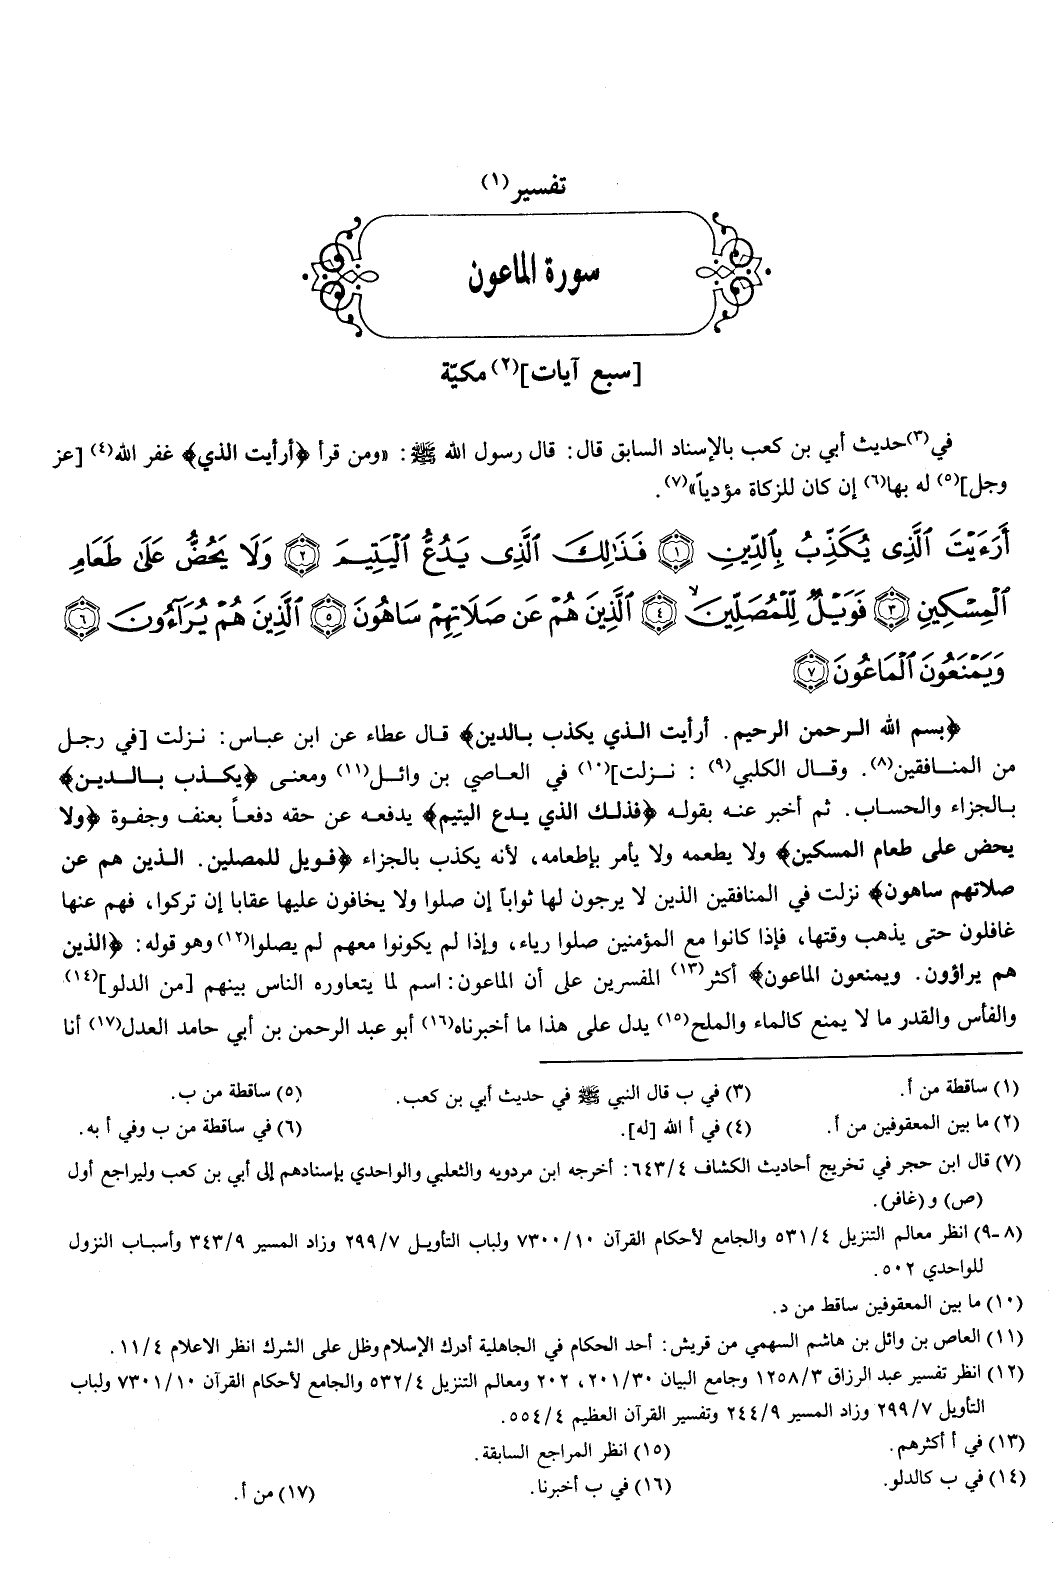 تفسير(١)
سورة الماعون
[سبع آيات](٢) مكيّة
في(٣)حديث أبي بن كعب بالإسناد السابق قال: قال رسول الله ﷺ: «ومن قرأ ﴿أرأيت الذي﴾ غفر الله(٤) [عز
وجل](٥) له بها(٦) إن كان للزكاة مؤدياً»(٧).
أَرَءَيْتَ ٱلَّذِى يُكَذِّبُ بِٱلدِّينِ ۝١ فَذَٰلِكَ ٱلَّذِى يَدُعُّ ٱلْيَتِيمَ ۝٢ وَلَا يَحُضُّ عَلَىٰ طَعَامِ
ٱلْمِسْكِينِ ۝٣ فَوَيْلٌ لِّلْمُصَلِّينَ ۝٤ ٱلَّذِينَ هُمْ عَن صَلَاتِهِمْ سَاهُونَ ۝٥ ٱلَّذِينَ هُمْ يُرَآءُونَ ۝٦
وَيَمْنَعُونَ ٱلْمَاعُونَ ۝٧
﴿بسم الله الرحمن الرحيم. أرأيت الذي يكذب بالدين﴾ قال عطاء عن ابن عباس: نزلت [في رجل
من المنافقين(٨). وقال الكلبي(٩) : نزلت](١٠) في العاصي بن وائل(١١) ومعنى ﴿يكذب بالدين﴾
بالجزاء والحساب. ثم أخبر عنه بقوله ﴿فذلك الذي يدع اليتيم﴾ يدفعه عن حقه دفعاً بعنف وجفوة ﴿ولا
يحض على طعام المسكين﴾ ولا يطعمه ولا يأمر بإطعامه، لأنه يكذب بالجزاء ﴿فويل للمصلين. الذين هم عن
صلاتهم ساهون﴾ نزلت في المنافقين الذين لا يرجون لها ثواباً إن صلوا ولا يخافون عليها عقابا إن تركوا، فهم عنها
غافلون حتى يذهب وقتها، فإذا كانوا مع المؤمنين صلوا رياء، وإذا لم يكونوا معهم لم يصلوا(١٢) وهو قوله: ﴿الذين
هم يراؤون. ويمنعون الماعون﴾ أكثر(١٣) المفسرين على أن الماعون: اسم لما يتعاوره الناس بينهم [من الدلو](١٤)
والفأس والقدر ما لا يمنع كالماء والملح(١٥) يدل على هذا ما أخبرناه(١٦) أبو عبد الرحمن بن أبي حامد العدل(١٧) أنا
(١) ساقطة من أ.
(٣) في ب قال النبي ﷺ في حديث أبي بن كعب.
(٥) ساقطة من ب.
(٢) ما بين المعقوفين من أ.
(٤) في أ الله [له].
(٦) في ساقطة من ب وفي أ به.
(٧) قال ابن حجر في تخريج أحاديث الكشاف ٦٤٣/٤: أخرجه ابن مردويه والثعلبي والواحدي بإسنادهم إلى أبي بن كعب وليراجع أول
(ص) و (غافر).
(٨-٩) انظر معالم التنزيل ٥٣١/٤ والجامع لأحكام القرآن ٧٣٠٠/١٠ ولباب التأويل ٢٩٩/٧ وزاد المسير ٣٤٣/٩ وأسباب النزول
للواحدي ٥٠٢.
(١٠) ما بين المعقوفين ساقط من د.
(١١) العاص بن وائل بن هاشم السهمي من قريش: أحد الحكام في الجاهلية أدرك الإسلام وظل على الشرك انظر الاعلام ١١/٤.
(١٢) انظر تفسير عبد الرزاق ١٢٥٨/٣ وجامع البيان ٢٠١/٣٠، ٢٠٢ ومعالم التنزيل ٥٣٢/٤ والجامع لأحكام القرآن ٧٣٠١/١٠ ولباب
التأويل ٢٩٩/٧ وزاد المسير ٢٤٤/٩ وتفسير القرآن العظيم ٥٥٤/٤.
(١٣) في أ أكثرهم.
(١٥) انظر المراجع السابقة.
(١٤) في ب كالدلو.
(١٦) في ب أخبرنا.
(١٧) من أ.